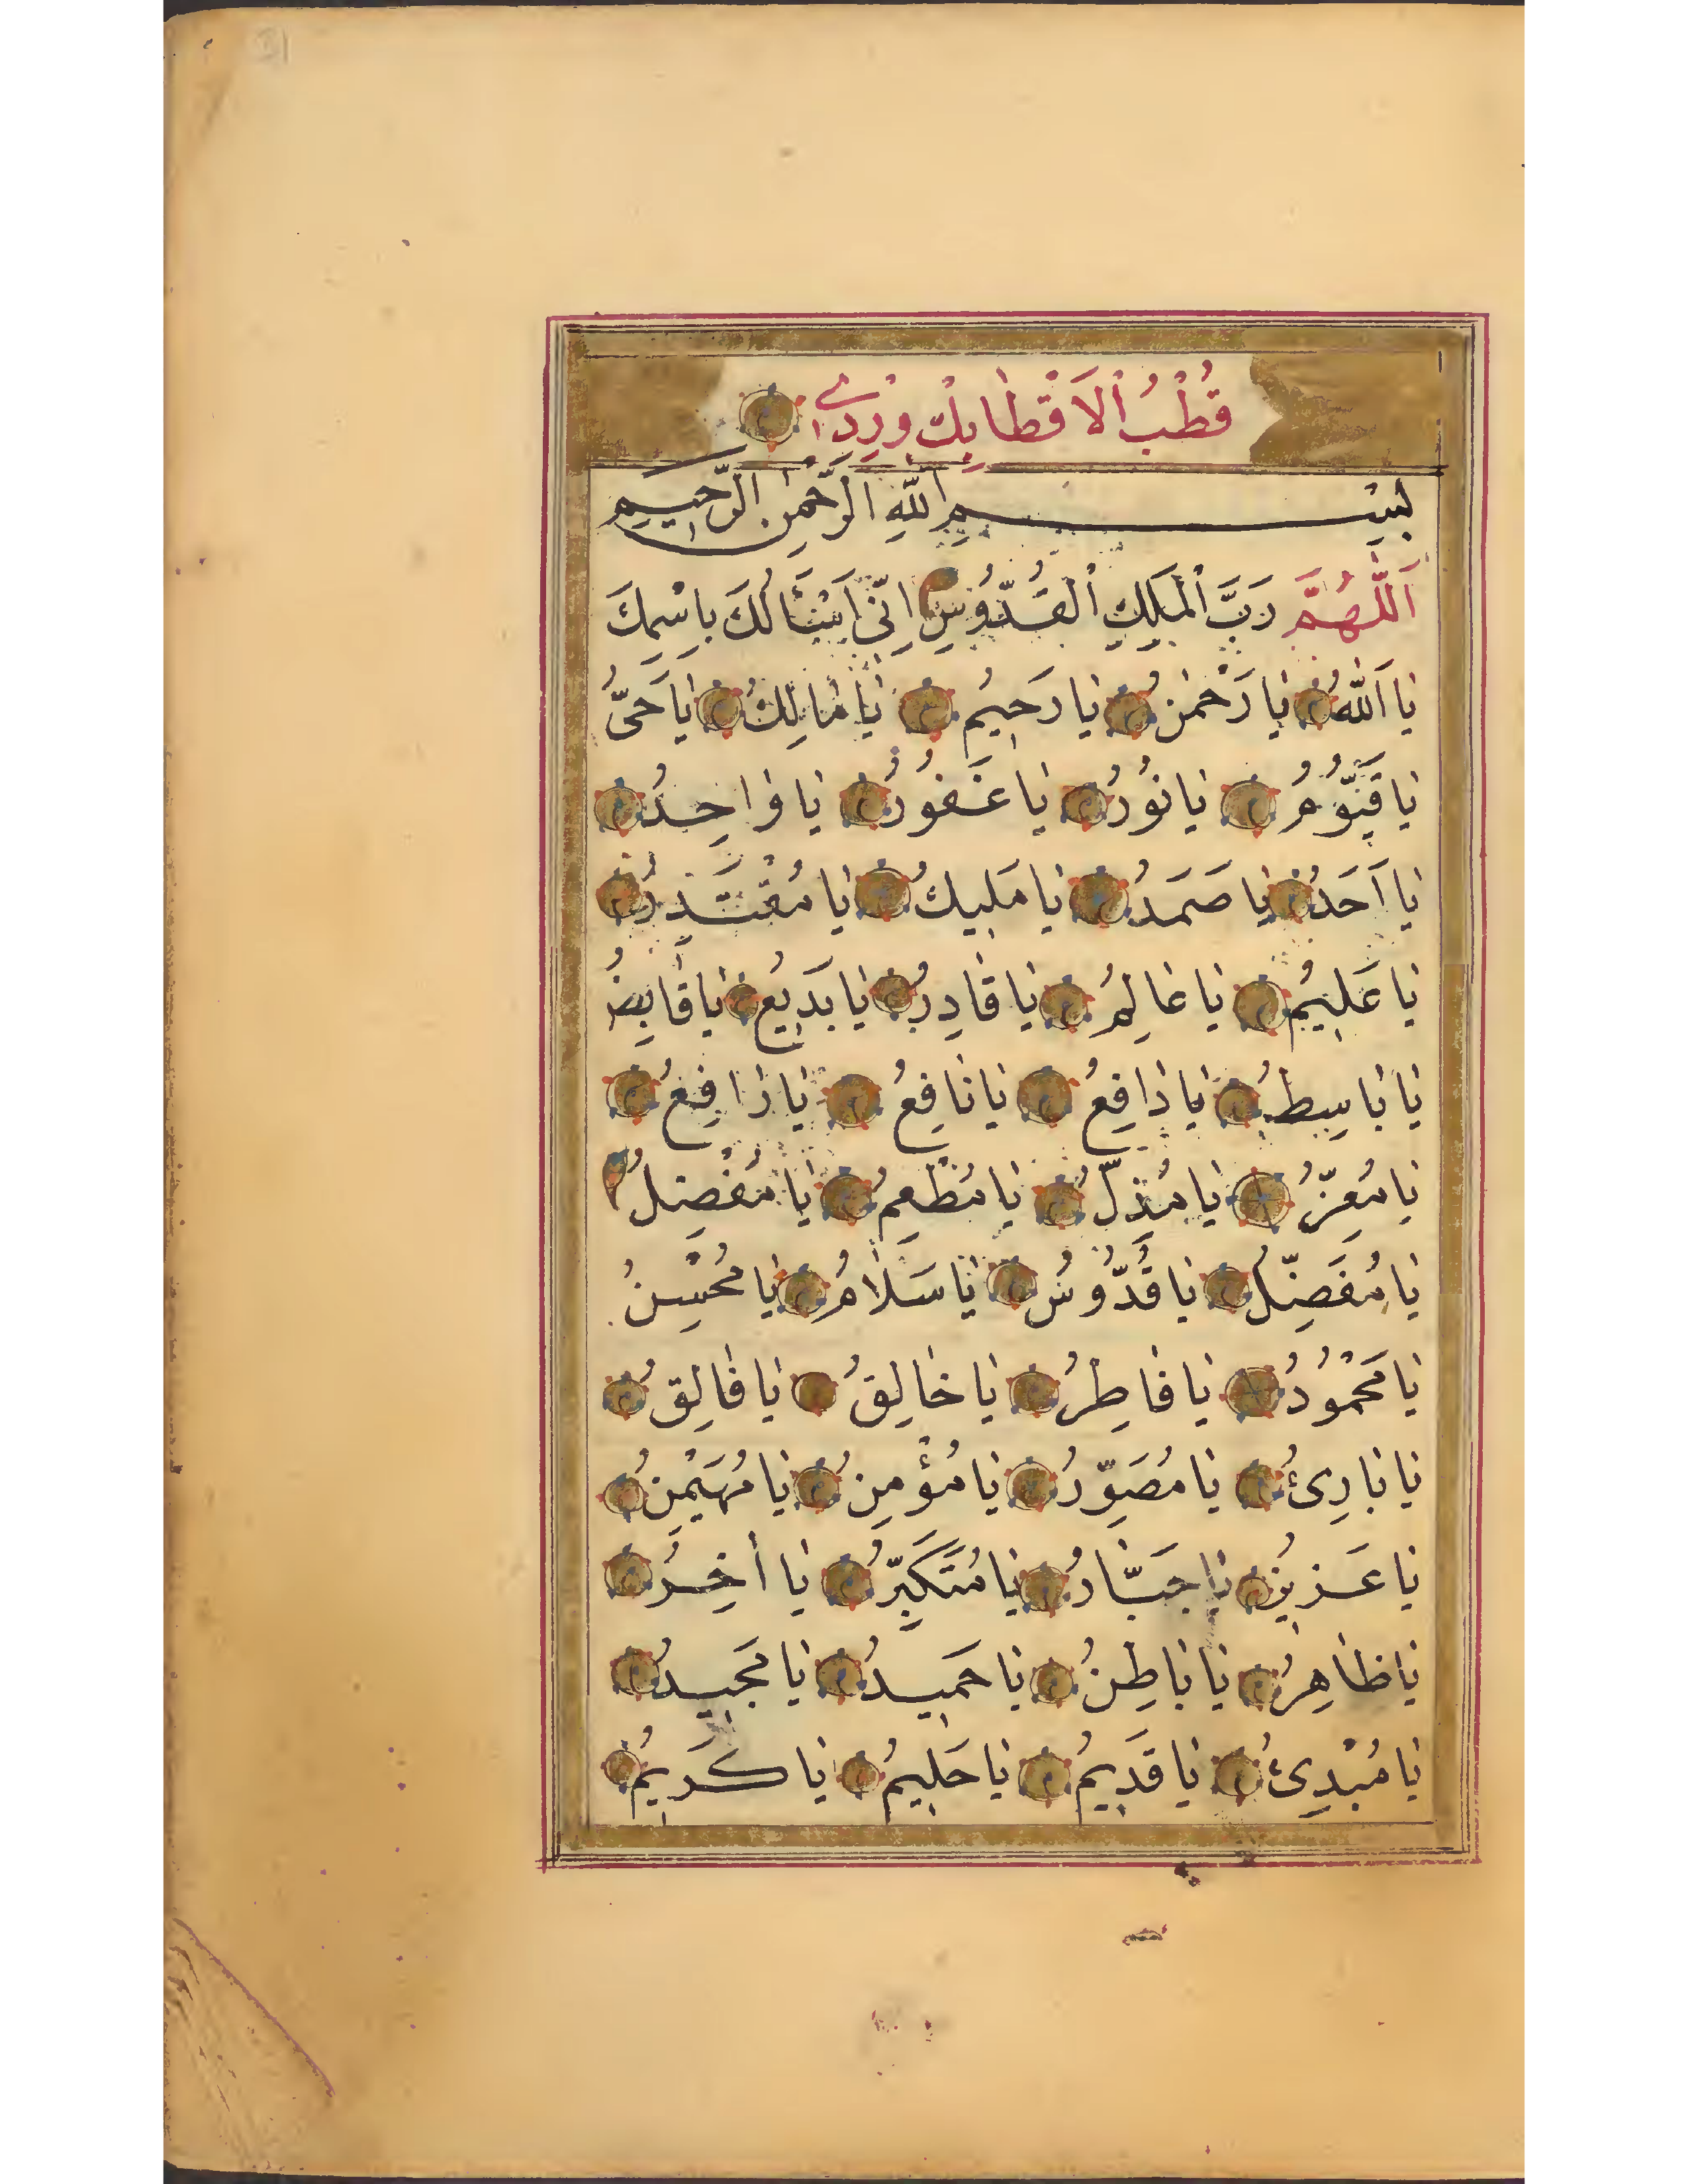 قُطْبُ الْاَقْطَابِكْ وِرْدِى
بِسْمِ اللّٰهِ الرَّحْمٰنِ الرَّحِيمِ
اَللّٰهُمَّ رَبَّ الْمَلِكِ الْقُدُّوسِ اِنّٖى اَسْئَالُكَ بِاِسْمِكَ
يَا اَللّٰهُ يَا رَحْمٰنُ يَا رَحِيمُ يَا مَالِكُ يَا حَىُّ
يَا قَيُّومُ يَا نُورُ يَا غَفُورُ يَا وَاحِدُ
يَا اَحَدُ يَا صَمَدُ يَا مَلِيكُ يَا مُقْتَدِرُ
يَا عَلِيمُ يَا عَالِمُ يَا قَادِرُ يَا بَدِيعُ يَا قَابِضُ
يَا بَاسِطُ يَا دَافِعُ يَا نَافِعُ يَا رَافِعُ
يَا مُعِزُّ يَا مُذِلُّ يَا مُطْعِمُ يَا مُفْضِلُ
يَا مُفَضِّلُ يَا قُدُّوسُ يَا سَلَامُ يَا مُحْسِنُ
يَا مَحْمُودُ يَا فَاطِرُ يَا خَالِقُ يَا فَالِقُ
يَا بَارِئُ يَا مُصَوِّرُ يَا مُؤْمِنُ يَا مُهَيْمِنُ
يَا عَزِيزُ يَا جَبَّارُ يَا مُتَكَبِّرُ يَا اٰخِرُ
يَا ظَاهِرُ يَا بَاطِنُ يَا حَمِيدُ يَا مَجِيدُ
يَا مُبْدِئُ يَا قَدِيمُ يَا حَلِيمُ يَا كَرِيمُ